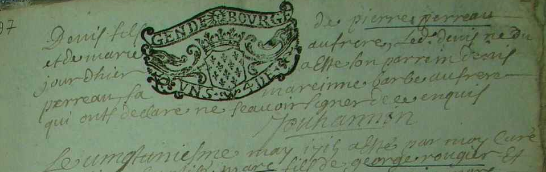 Denis fils de pierre perreau
et de marie aufrere, Led. denis ne du
jour dhier a este son parrin denis
perreau sa mareinne barbe aufrere
qui ont declare ne scavoir signer de ce enquis
Jouhannin
GEN DE BOURG
Le vingtuniesme may a este par moy Curé
fils de george rougier Et